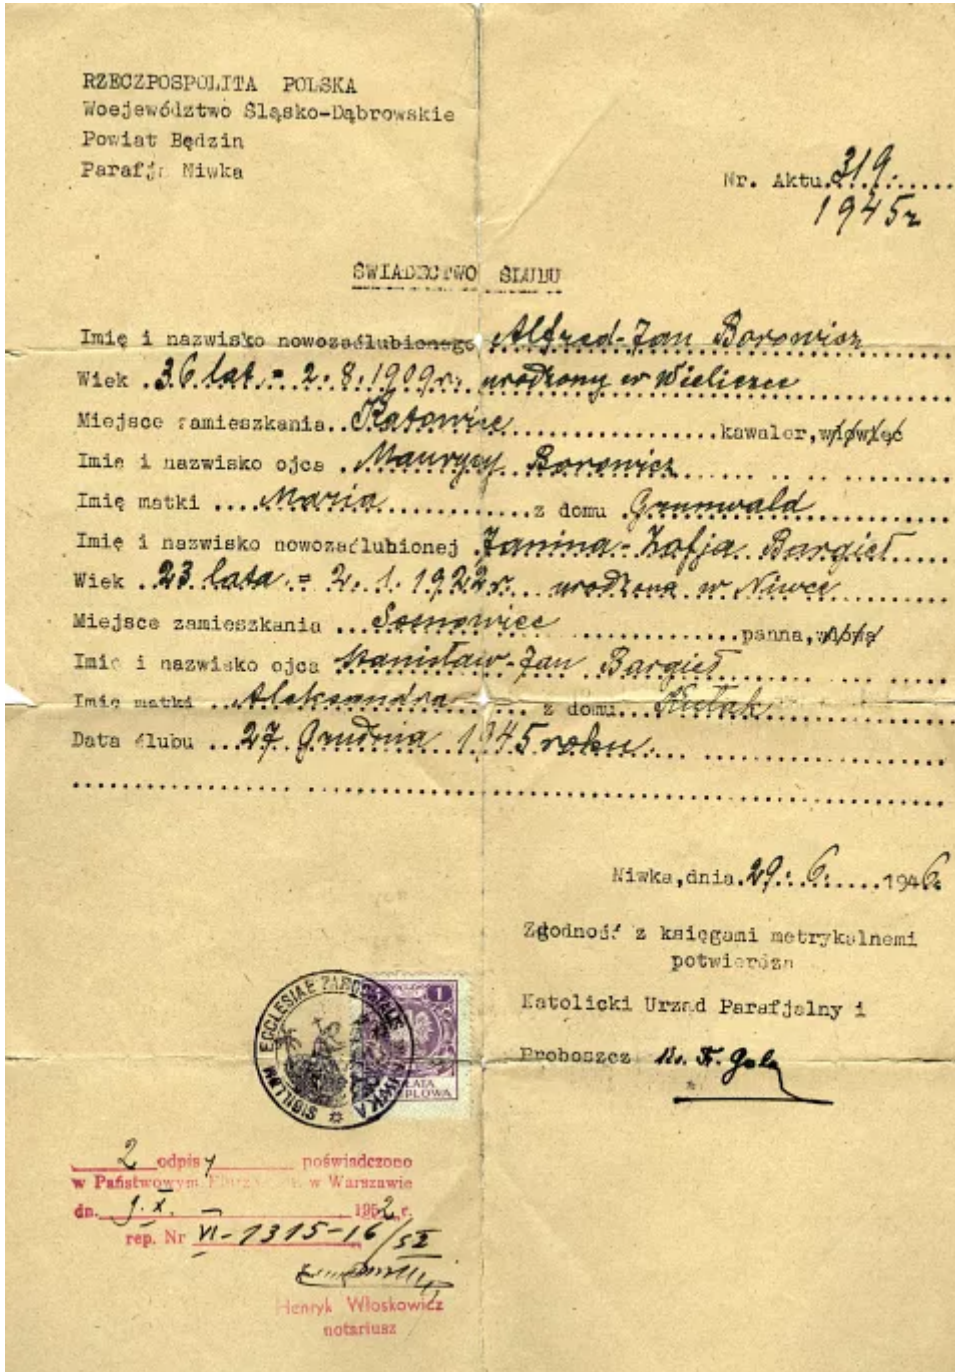 RZECZPOSPOLITA POLSKA
Woejewództwo Śląsko-Dąbrowskie
Powiat Będzin
Parafja Niwka
Nr. Aktu.319.
1945r
ŚWIADECTWO ŚLUBU
Imię i nazwisko nowozaślubionego Alfred-Jan Borowicz
Wiek 36 lat = 2.8.1909r. urodzony w Wieliczce
Miejsce zamieszkania Katowice kawaler, wdowiec
Imię i nazwisko ojca Maurycy Borowicz
Imię matki Maria z domu Grunwald
Imię i nazwisko nowozaślubionej Janina-Zofja Bargieł
Wiek 23 lata = 2.1.1922r. urodzona w Niwce
Miejsce zamieszkania Sosnowiec panna, wdowa
Imię i nazwisko ojca Stanisław-Jan Bargieł
Imię matki Aleksandra z domu Kułak
Data ślubu 27 Grudnia 1945 roku.
Niwka, dnia 29. 6. 1946.
Zgodność z księgami metrykalnemi
potwierdza
Katolicki Urząd Parafjalny i
Proboszcz Ks. Fr. Gola
SIGILLUM ECCLESIAE PAROCHIALIS NIWKA
1
2 odpisy poświadczono
w Państwowym w Warszawie
dn. 9.X. - 1952 r.
rep. Nr VI-1315-16/52
Henryk Włoskowicz
notariusz